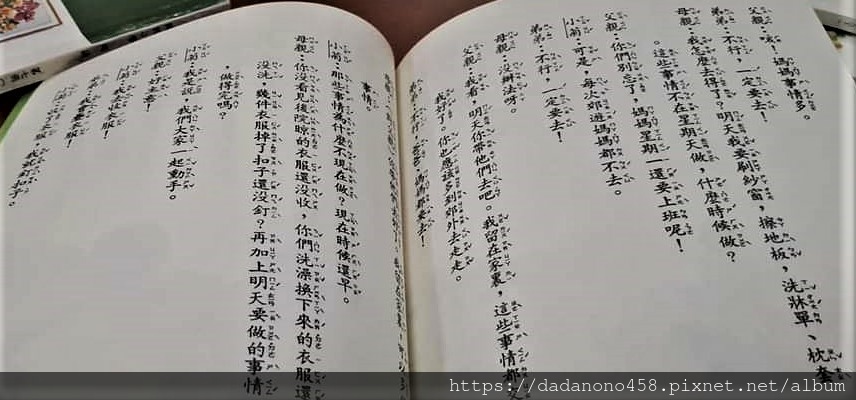 父親：唉！媽媽事情多。
弟弟：不行，一定要去！
母親：我怎麼去得了？明天我要刷紗窗，擦地板，洗牀單、枕套
。這些事情不在星期天做，什麼時候做？
父親：你們別忘了，媽媽星期一還要上班呢！
小菊：可是，每次郊遊媽媽都不去。
弟弟：不行，一定要去！
母親：沒辦法呀。
父親：我看，明天你帶他們去吧。我留在家裏，這些事情都交
我好了。你也應該多到郊外去走走。
弟弟：不行，爸爸、媽媽都要去！
事情。
小菊：那些事情為什麼不現在做？現在時候還早。
母親：你沒看見後院晾的衣服還沒收，你們洗澡換下來的衣服還
沒洗，幾件衣服掉了扣子還沒釘？再加上明天要做的事情
，做得完嗎？
小菊：我是說，我們大家一起動手。
父親：好主意！
小菊：我收衣服！
衣服，我會釘扣子。
https://dadanono458.pixnet.net/album